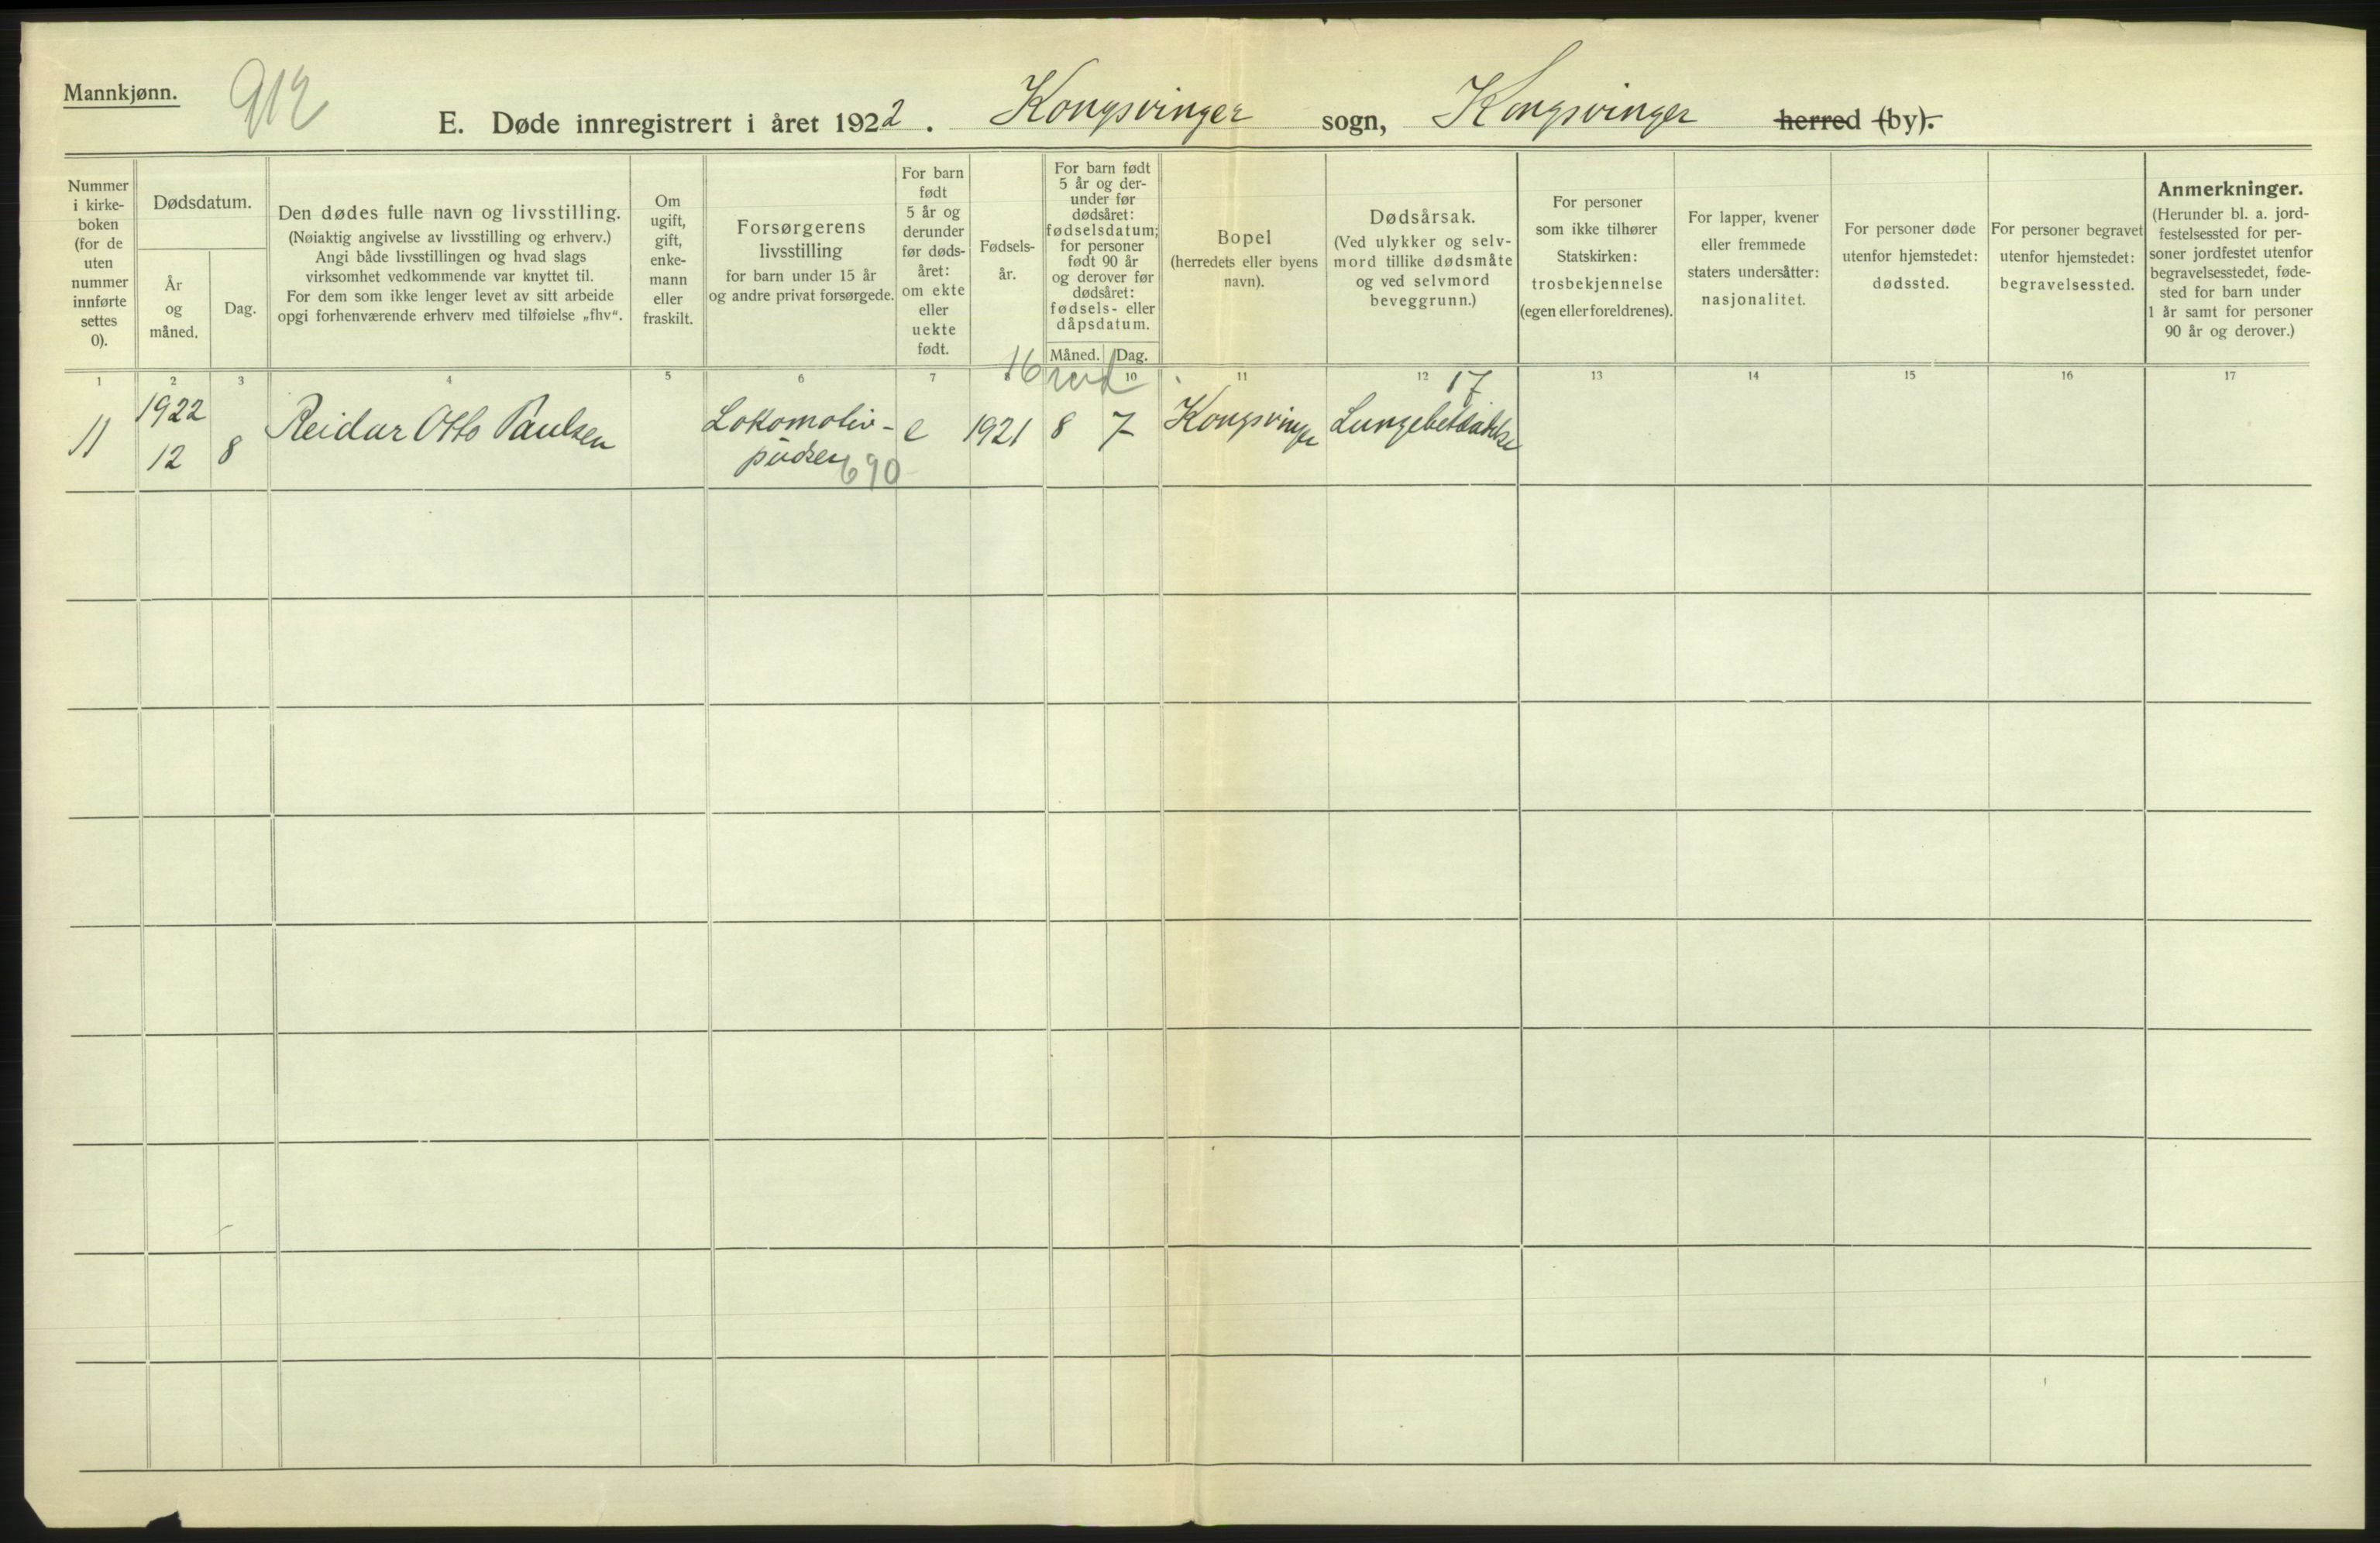 Mannkjønn.
912
E. Døde innregistrert i året 1922. Kongsvinger sogn, Kongsvinger herred (by).
Nummer
i kirke-
boken
(for de
uten
nummer
innførte
settes
0).
Dødsdatum.
År
og
måned.
Dag.
Den dødes fulle navn og livsstilling.
(Nøiaktig angivelse av livsstilling og erhverv.)
Angi både livsstillingen og hvad slags
virksomhet vedkommende var knyttet til.
For dem som ikke lenger levet av sitt arbeide
opgi forhenværende erhverv med tilføielse „fhv“.
Om
ugift,
gift,
enke-
mann
eller
fraskilt.
Forsørgerens
livsstilling
for barn under 15 år
og andre privat forsørgede.
For barn
født
5 år og
derunder
før døds-
året:
om ekte
eller
uekte
født.
Fødsels-
år.
For barn født
5 år og der-
under før
dødsåret:
fødselsdatum;
for personer
født 90 år
og derover før
dødsåret:
fødsels- eller
dåpsdatum.
Måned.
Dag.
Bopel
(herredets eller byens
navn).
Dødsårsak.
(Ved ulykker og selv-
mord tillike dødsmåte
og ved selvmord
beveggrunn.)
For personer
som ikke tilhører
Statskirken:
trosbekjennelse
(egen eller foreldrenes).
For lapper, kvener
eller fremmede
staters undersåtter:
nasjonalitet.
For personer døde
utenfor hjemstedet:
dødssted.
For personer begravet
utenfor hjemstedet:
begravelsessted.
Anmerkninger.
(Herunder bl. a. jord-
festelsessted for per-
soner jordfestet utenfor
begravelsesstedet, føde-
sted for barn under
1 år samt for personer
90 år og derover.)
1 2 3 4 5 6 7 10 11 12 13 14 15 16 17
16
17
11
1922
12
8
Reidar Otto Paulsen
Lokomotiv-
pudser
690
e
1921
8
7
Kongsvinger
Lungebetændelse